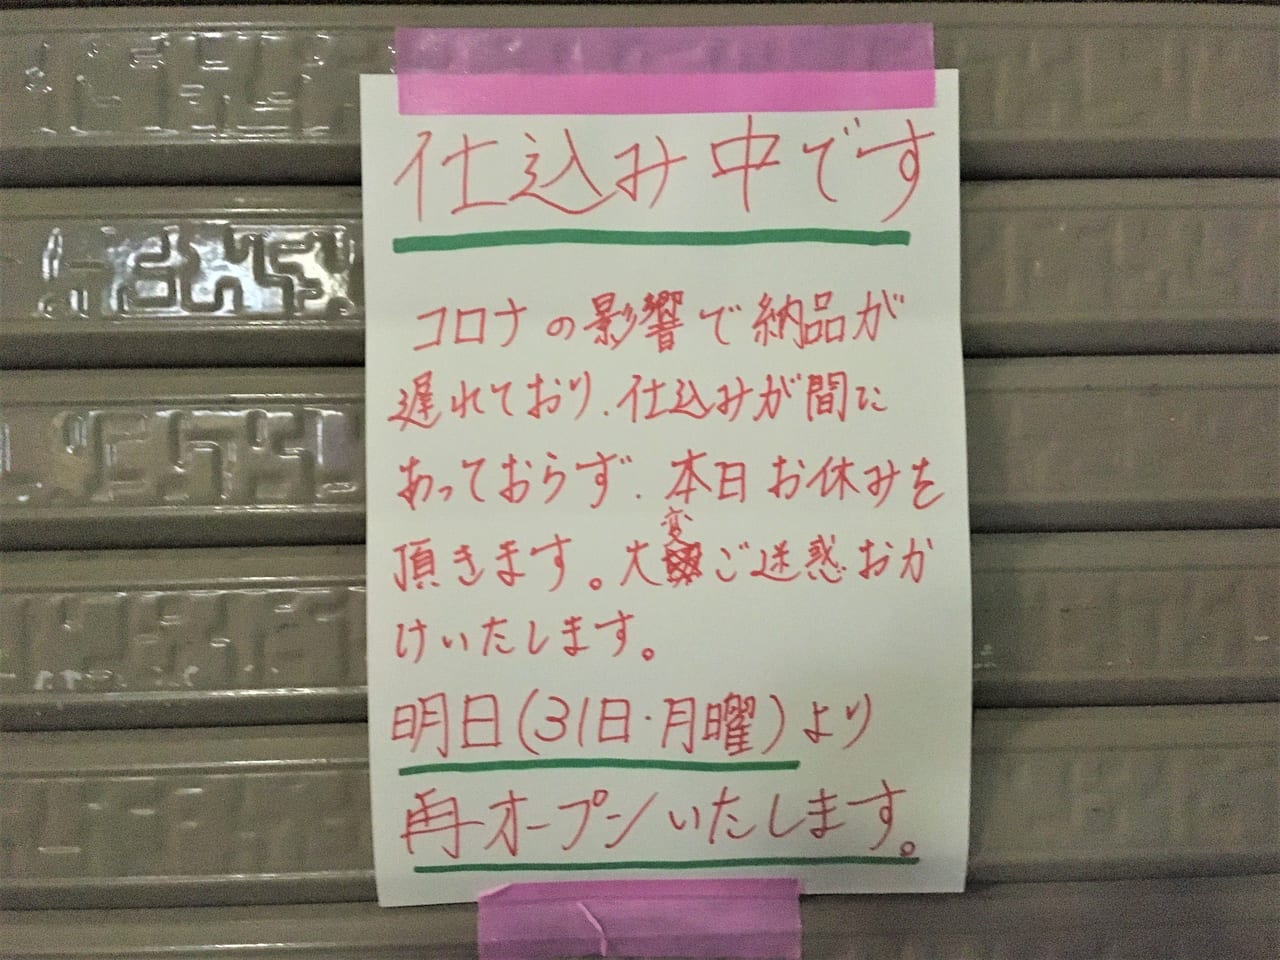 仕込み中です
コロナの影響で納品が
遅れており、仕込みが間に
あっておらず、本日お休みを
頂きます。大変ご迷惑おか
けいたします。
明日(31日・月曜)より
再オープンいたします。